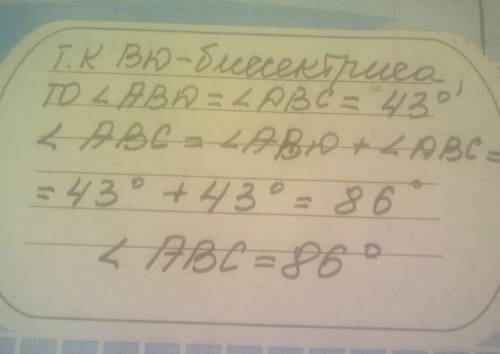 т.к ВD-биссектриса,
то ∠ABD = ∠DBC = 43°
∠ABC = ∠ABD + ∠DBC =
= 43° + 43° = 86°
∠ABC = 86°